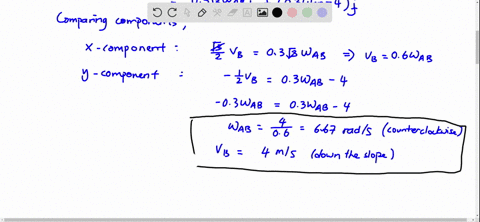 Comparing components,
x-component : √3/2 V_B = 0.3√3 ω_AB ⇒ V_B = 0.6ω_AB
y-component : -1/2 V_B = 0.3ω_AB - 4
-0.3ω_AB = 0.3ω_AB - 4
ω_AB = 4/0.6 = 6.67 rad/s (counterclockwise)
V_B = 4 m/s (down the slope)